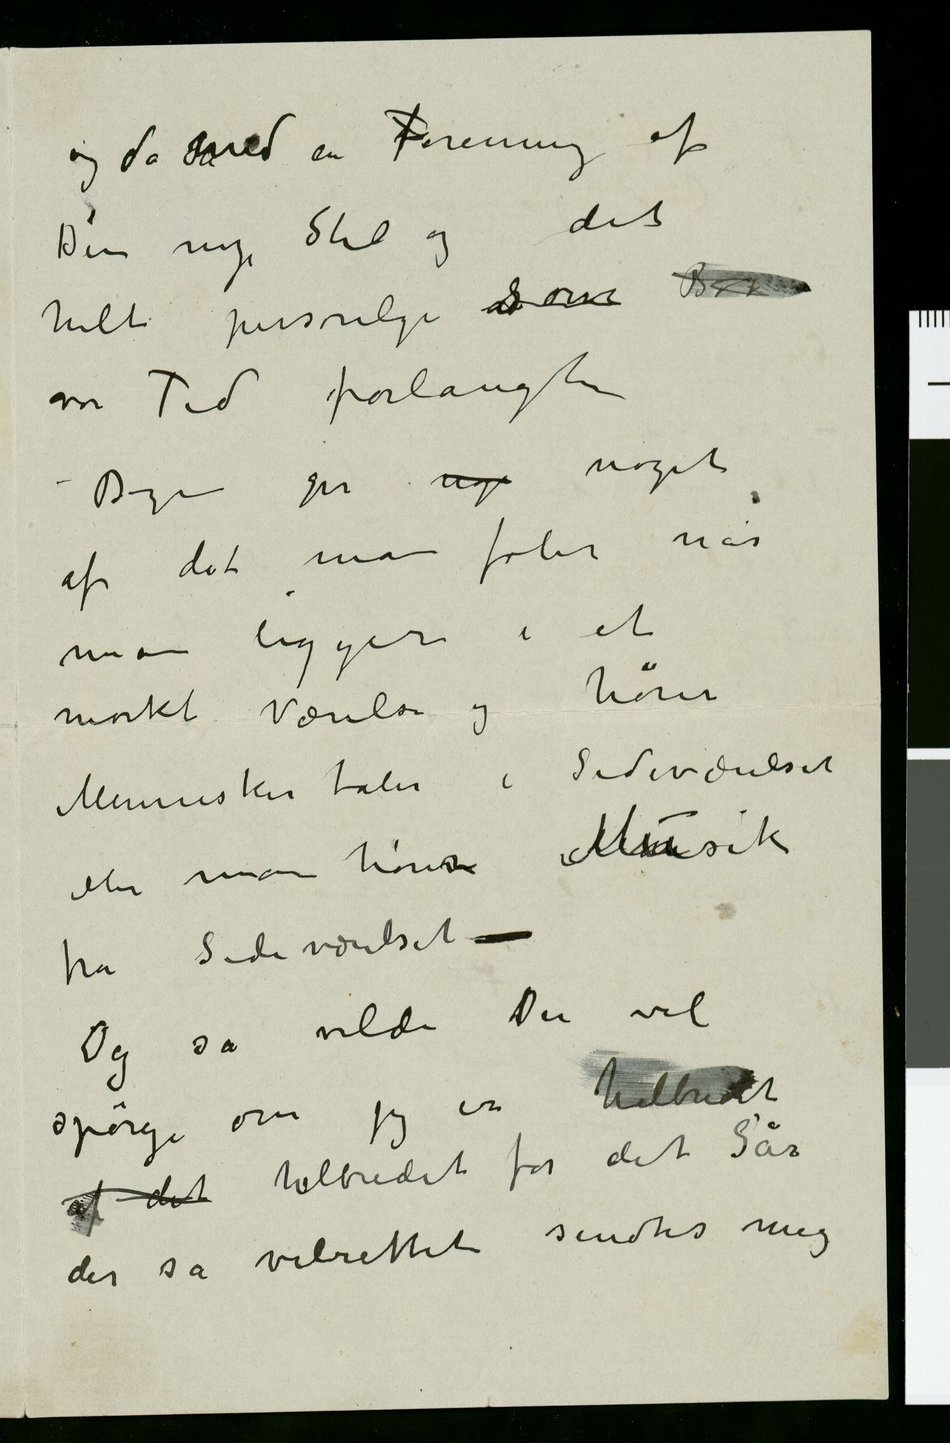 og da med en Forening af
Din nye Stil og det
helt personlige som
vor Tid forlangte
– Bogen gir nye noget
af det man føler når
man ligger i et
mørkt Værelse og hører
Mennesker taler i Sideværelset
eller man hører Musik
fra Sideværelset –
Og så vilde De vel
spørge om jeg er helbredet
af det helbredet for det Sår
der så velrettet sendtes mig